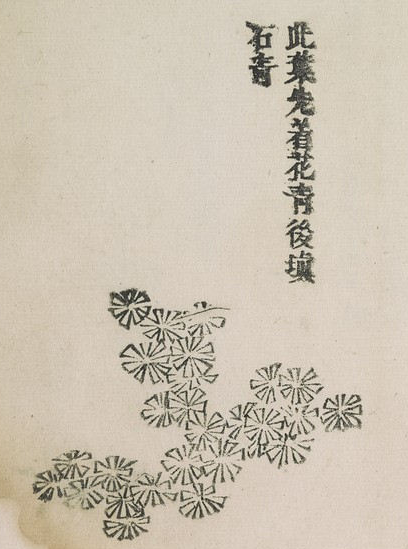 此葉先着花青後塡
石青